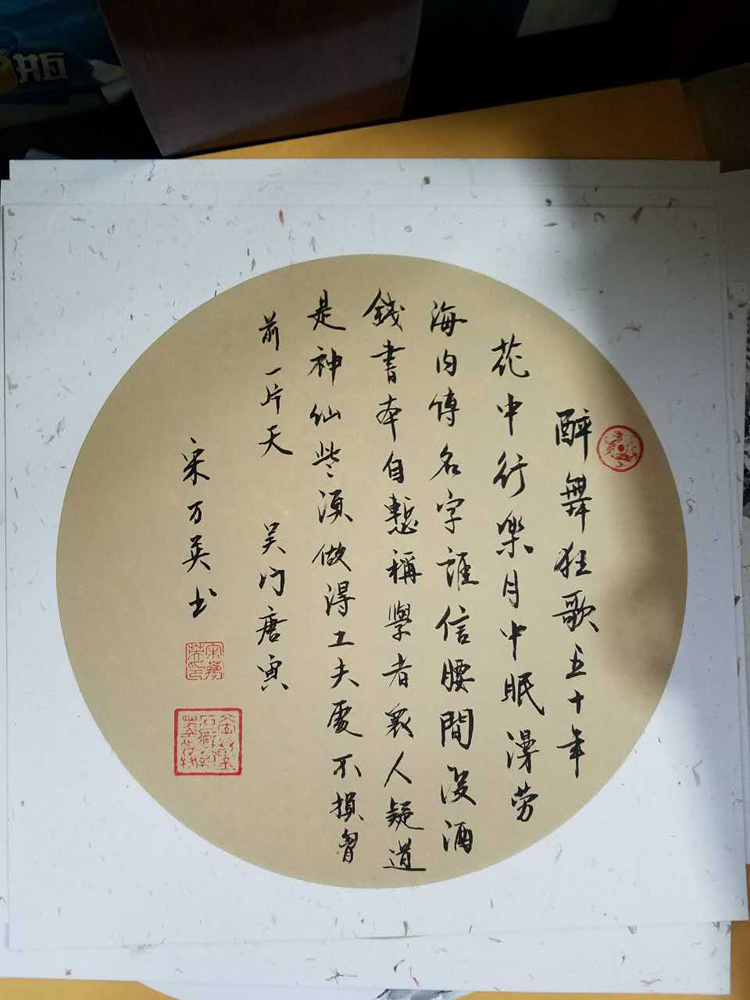 醉舞狂歌五十年
花中行樂月中眠漫勞
海内傳名字誰信腰間没酒
錢書本自慙稱學者衆人疑道
是神仙些須做得工夫處不損胷
前一片天 吴门唐寅
宋万英书
瓶